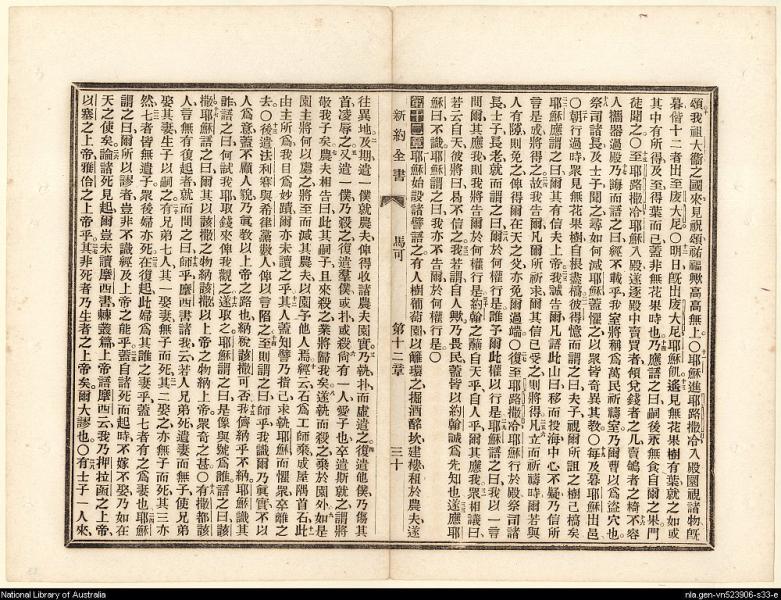 頌我祖大衞之國來見視頌祐福歟高高無上○耶穌進耶路撒冷入殿圜視諸物旣
暮偕十二者出至庋大尼○明日旣出庋大尼耶穌飢遙見無花果樹有葉就之如或
其中有所得及至得葉而已蓋非無花果時也乃應語之曰嗣後永無食自爾之果門
徒聞之○至耶路撒冷耶穌入殿遂逐殿中賣買者傾兌錢者之几賣鴿者之椅不容
人攜器過殿乃誨而語之曰經不載乎我室將稱為萬民祈禱室乃爾曹以為盜穴也
祭司諸長及士子聞之尋如何滅耶穌蓋懼之以眾皆奇異其教○每及暮耶穌出邑
○朝行過時眾見無花果樹自根盡槁彼得憶而謂之曰夫子視爾所詛之樹己槁矣
耶穌應謂之曰爾其有信夫上帝我誠告爾凡爾語此山曰移而投海中心不疑乃信所
言是成將得之故我告爾凡爾所祈求爾其信已受之則將得凡立而祈禱時爾若與
人有隙則免之俾得爾在天之父亦免爾過端○復至耶路撒冷耶穌行於殿祭司諸
長士子長老就而謂之曰爾於何權行是誰予爾此權以行是耶穌語之曰我以一言
問爾其應我則我將告爾於何權行是約翰之蘸自天乎自人乎爾其應我眾相議曰
若云自天彼將曰曷不信之我若謂自人歟乃畏民蓋皆以約翰誠為先知也遂應耶
穌曰不識耶穌謂之曰我亦不告爾於何權行是○
第十二章耶穌始設諸譬語之有人樹葡萄園以籬環之掘酒醡坎建樓租於農夫遂
新約全書
馬可
第十二章
三十
往異地及期遣一僕就農夫俾得收諸農夫園實乃執扑而虛遣之復遣他僕乃傷其
首凌辱之又遣一僕乃殺之復遣羣僕或扑或殺尚有一人愛子也卒遣斯就之謂將
敬我子矣農夫相告曰此其嗣子且來殺之業將歸我矣遂執而殺之棄於園外如是
園主將何以處之將至而滅其農夫以園予他人焉經云石為工師棄成屋隅首石此
由主所為我目為妙蹟爾亦未讀之乎其人蓋知譬乃指己求執耶穌而懼眾卒離之
去○後遣法利賽與希律黨數人俾以言陷之至則謂之曰師乎我識爾乃眞實不以
人為意蓋不顧人貌乃眞教以上帝之路也納稅該撒可否我儕納乎不納耶穌識其
詐語之曰何試我耶取錢來俾我觀之遂取之耶穌謂之曰是像與號為誰語之曰該
撒耶穌語之曰爾其以該撒之物納該撒以上帝之物納上帝眾奇之甚○有撒都該
人言無有復起者就而問之曰師乎摩西書諸我云若人兄弟死遺妻而無子使兄弟
娶其妻生子以嗣之有兄弟七人其一娶妻無子而死其二娶之亦無子而死其三亦
然七者皆無遺子眾後婦亦死在復起此婦為其誰之妻乎蓋七者有之為妻也耶穌
謂之曰爾所以謬者豈非不識經及上帝之能乎蓋自諸死而起時不嫁不娶乃如在
天之使矣論諸死見起爾豈未讀摩西書棘叢篇上帝語摩西云我乃押拉函之上帝
以塞之上帝雅佮之上帝乎其非死者乃生者之上帝矣爾大謬也○有士子一人來
National Library of Australia
nla.gen-vn523906-s33-e